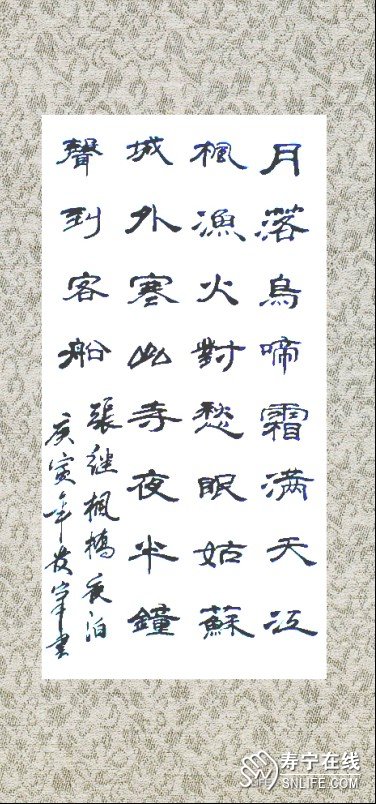 月落烏啼霜满天江
楓漁火對愁眠姑蘇
城外寒山寺夜半鐘
聲到客船
張继楓橋夜泊
庚寅年書
寿宁在线
SNLIFE.COM